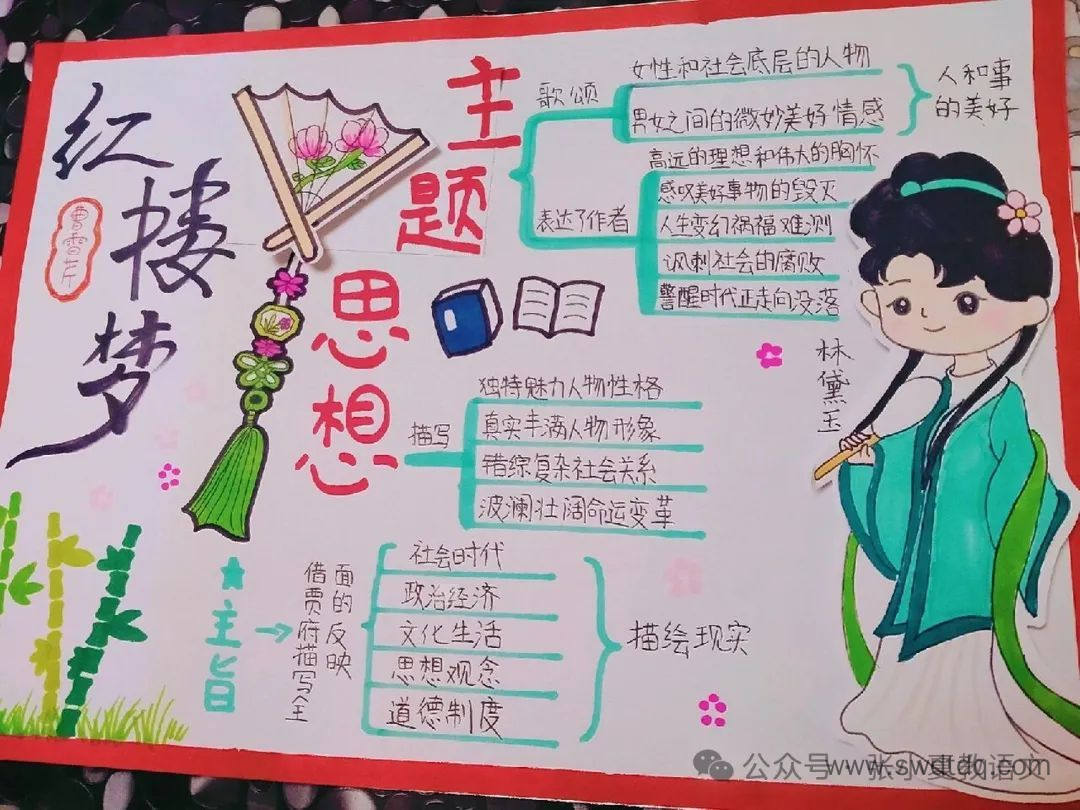 红楼梦
曹雪芹
主题
思想
歌颂
女性和社会底层的人物
男女之间的微妙美好情感
人和事
的美好
表达了作者
高远的理想和伟大的胸怀
感叹美好事物的毁灭
人生变幻祸福难测
讽刺社会的腐败
警醒时代正走向没落
林黛玉
描写
独特魅力人物性格
真实丰满人物形象
错综复杂社会关系
波澜壮阔命运变革
主旨
借贾府描写全
面的反映
社会时代
政治经济
文化生活
思想观念
道德制度
描绘现实
公众号